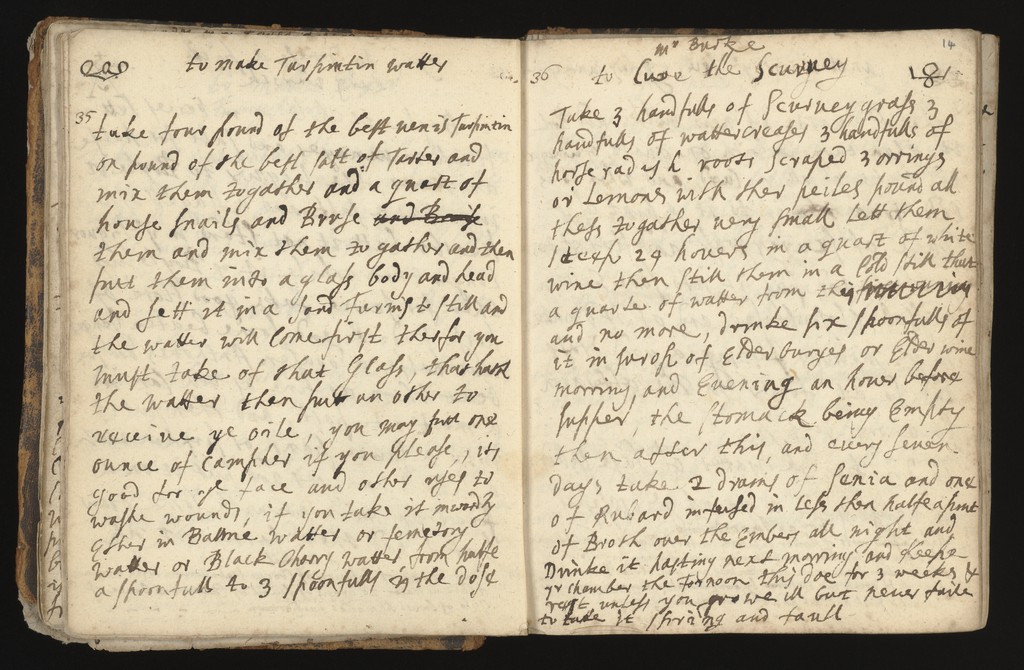 to make Turpintin watter
35
take four pound of the best venis Turpintin
on pound of the best salt of Tarter and
mix them togather and a quart of
house snails and Bruse and Bruise
them and mix them to gather and then
put them into a glass body and head
and sett it in a sand Furnis to still and
the watter will Come first therfor you
must take of that Glass, that hath
the watter then put an other to
receive ye oile, you may put one
ounce of Campher if you please, its
good for ye face and other uses to
washe wounds, if you take it inwardly
Ether in Balme watter or femetory
watter or Black Charry watter, from halfe
a spoonfull to 3 spoonfulls in the dose
14
mrs Burke
36 to Cure the Scurvey 181
Take 3 handfulls of Scurveygrass 3
handfulls of wattercreases 3 handfulls of
horse radish roots scraped 3 orringes
or Lemons with ther peiles pound all
thess togather very small Lett them
steep 24 houers in a quart of white
wine then still them in a Cold still
a quarte of watter from this
and no more, drinke six spoonfulls of
it in sirop of Elder buryes or Elder wine
morning, and Evening an houer before
supper, the stomack being Empty
then after this, and every seven
days take 2 drams of Senia and one
of Rubard infused in Less then halfe a pint
of Broth over the Embers all night and
Drinke it fasting next morning and keepe
yr chamber the fornoon this doe for 3 weekes &
rest unless you grow ill but never faile
to take it spring and faull